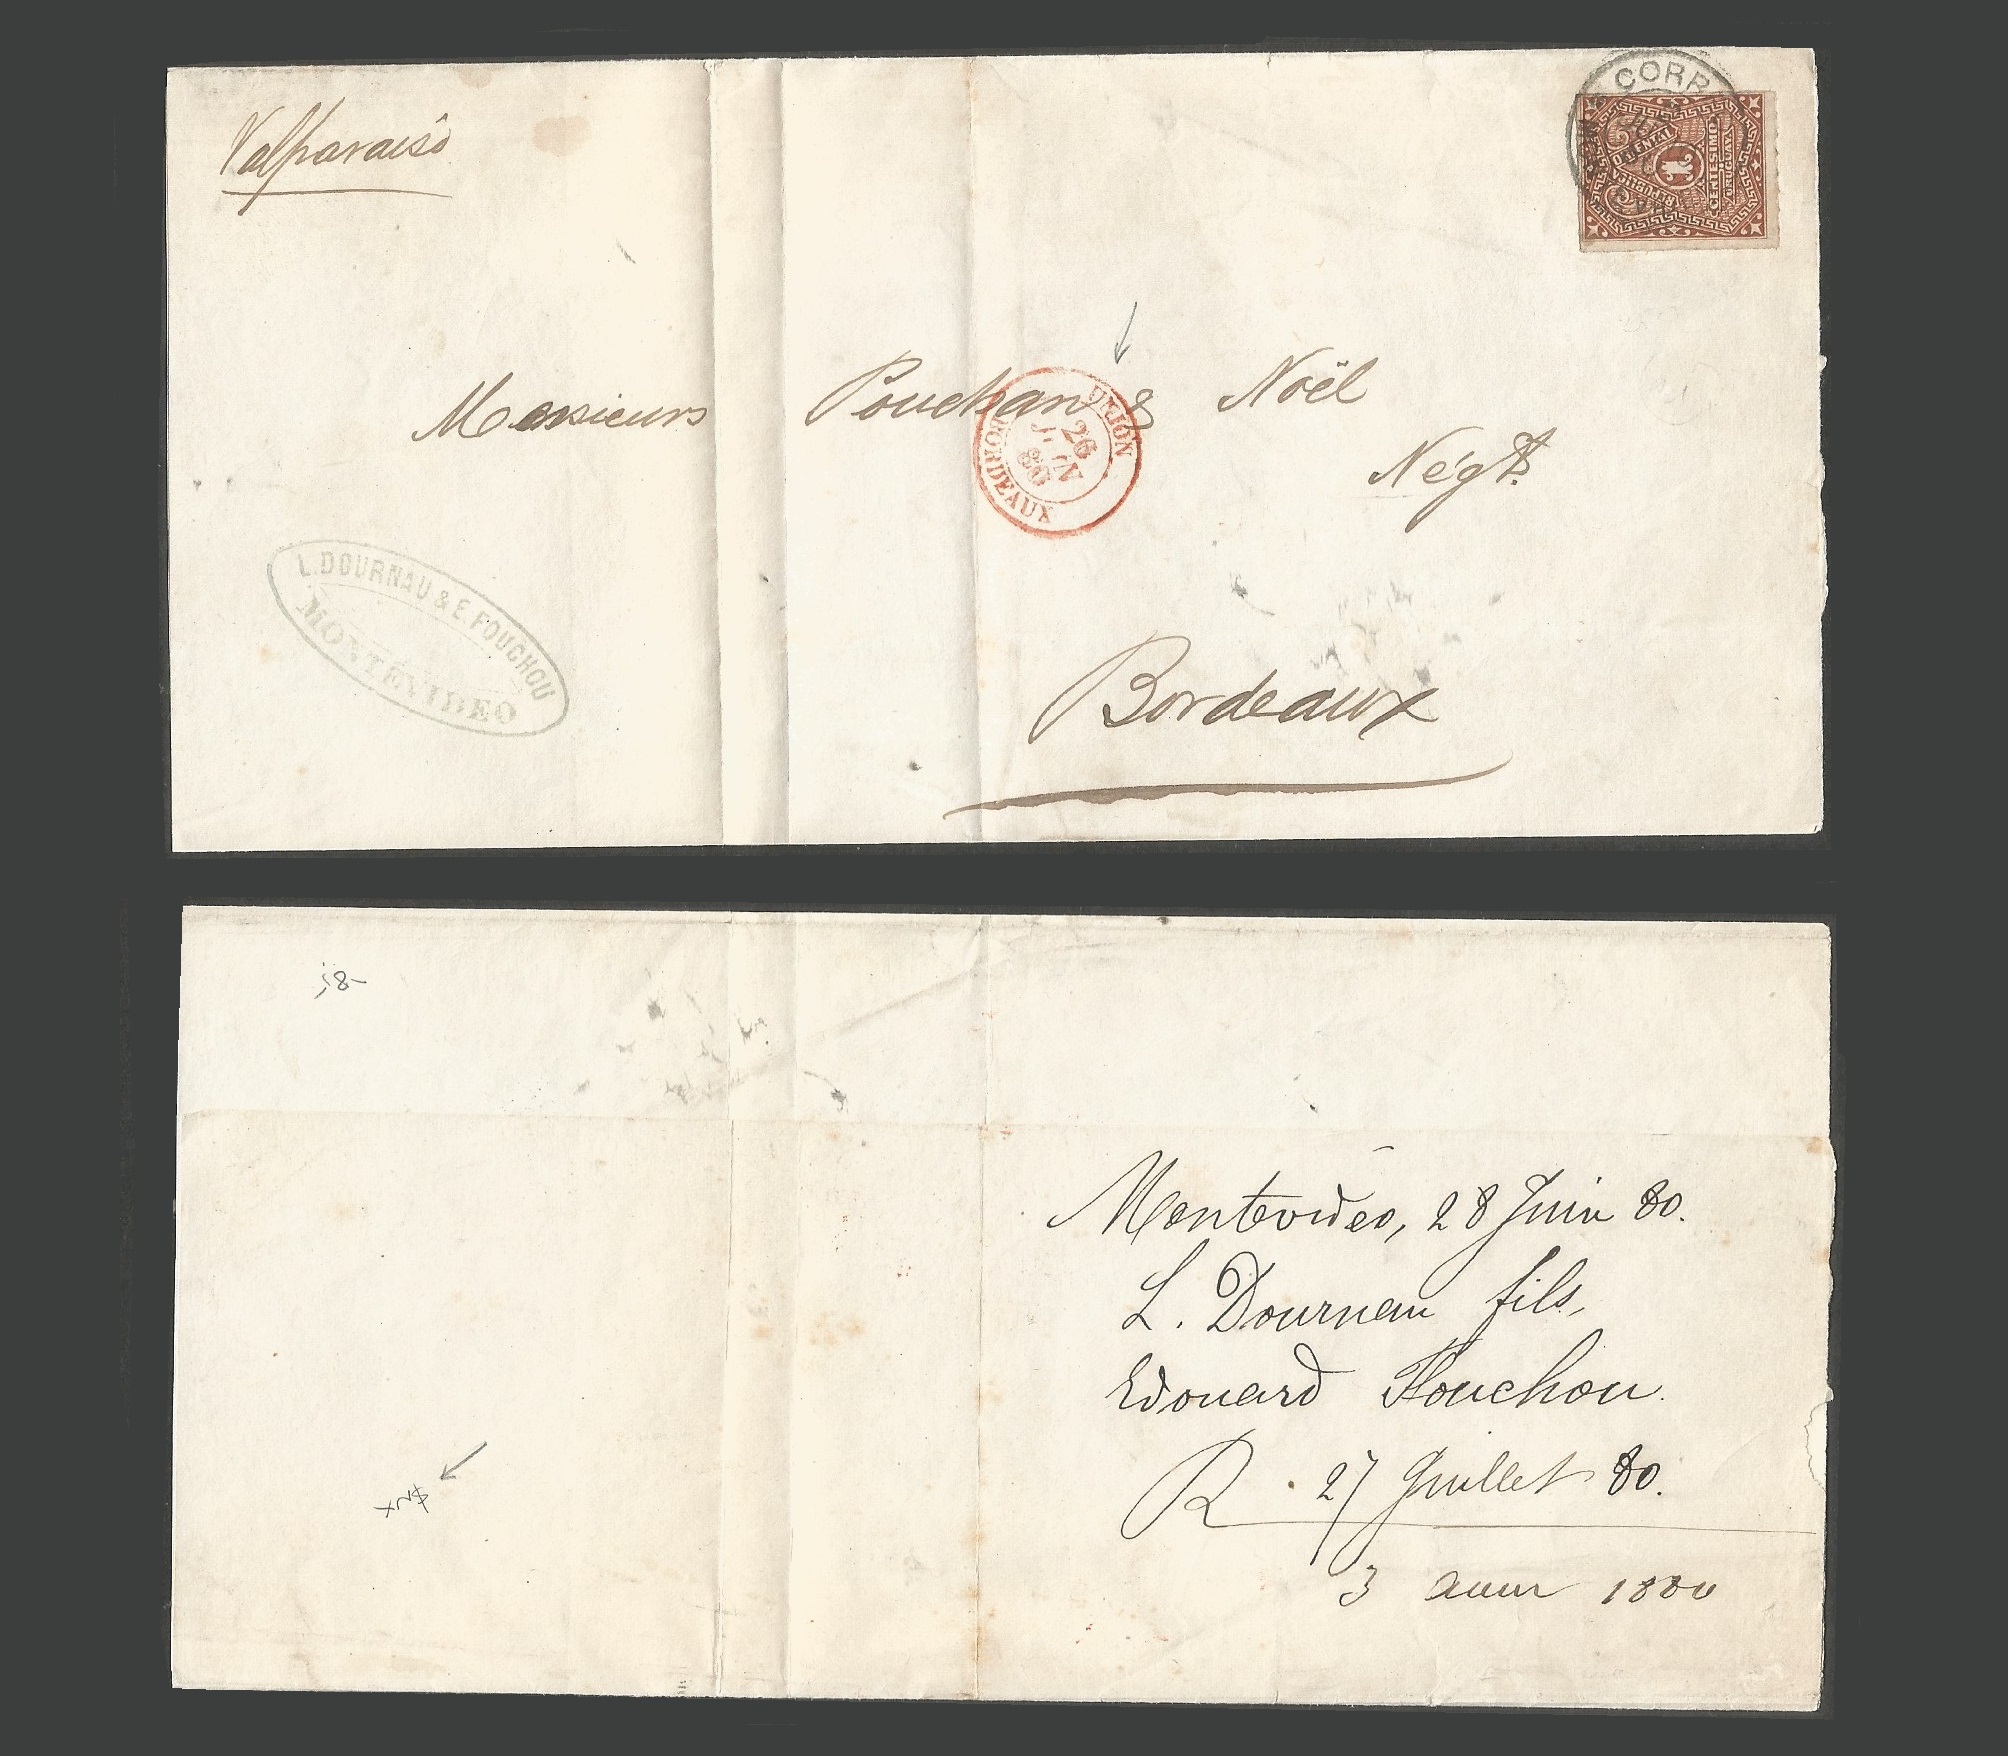 Valparaiso
CORR
REPUBLICA ORIENTAL
1
CENTESIMO
URUGUAY
Messieurs Pouchan & Noël
Négts.
UNION
26
JUIN
80
BORDEAUX
L. DOURNAU & E. FOUCHOU
MONTEVIDEO
Bordeaux
Montevideo, 28 Juin 80.
L. Dournau fils,
Edouard Fouchou.
R 27 Juillet 80.
3 1880